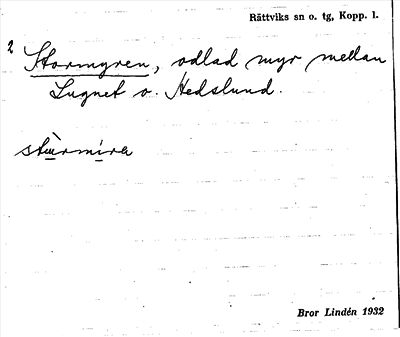 Rättviks sn o. tg, Kopp. l.
2 Stormyren, odlad myr mellan
Lugnet o. Hedslund.
Bror Lindén 1932